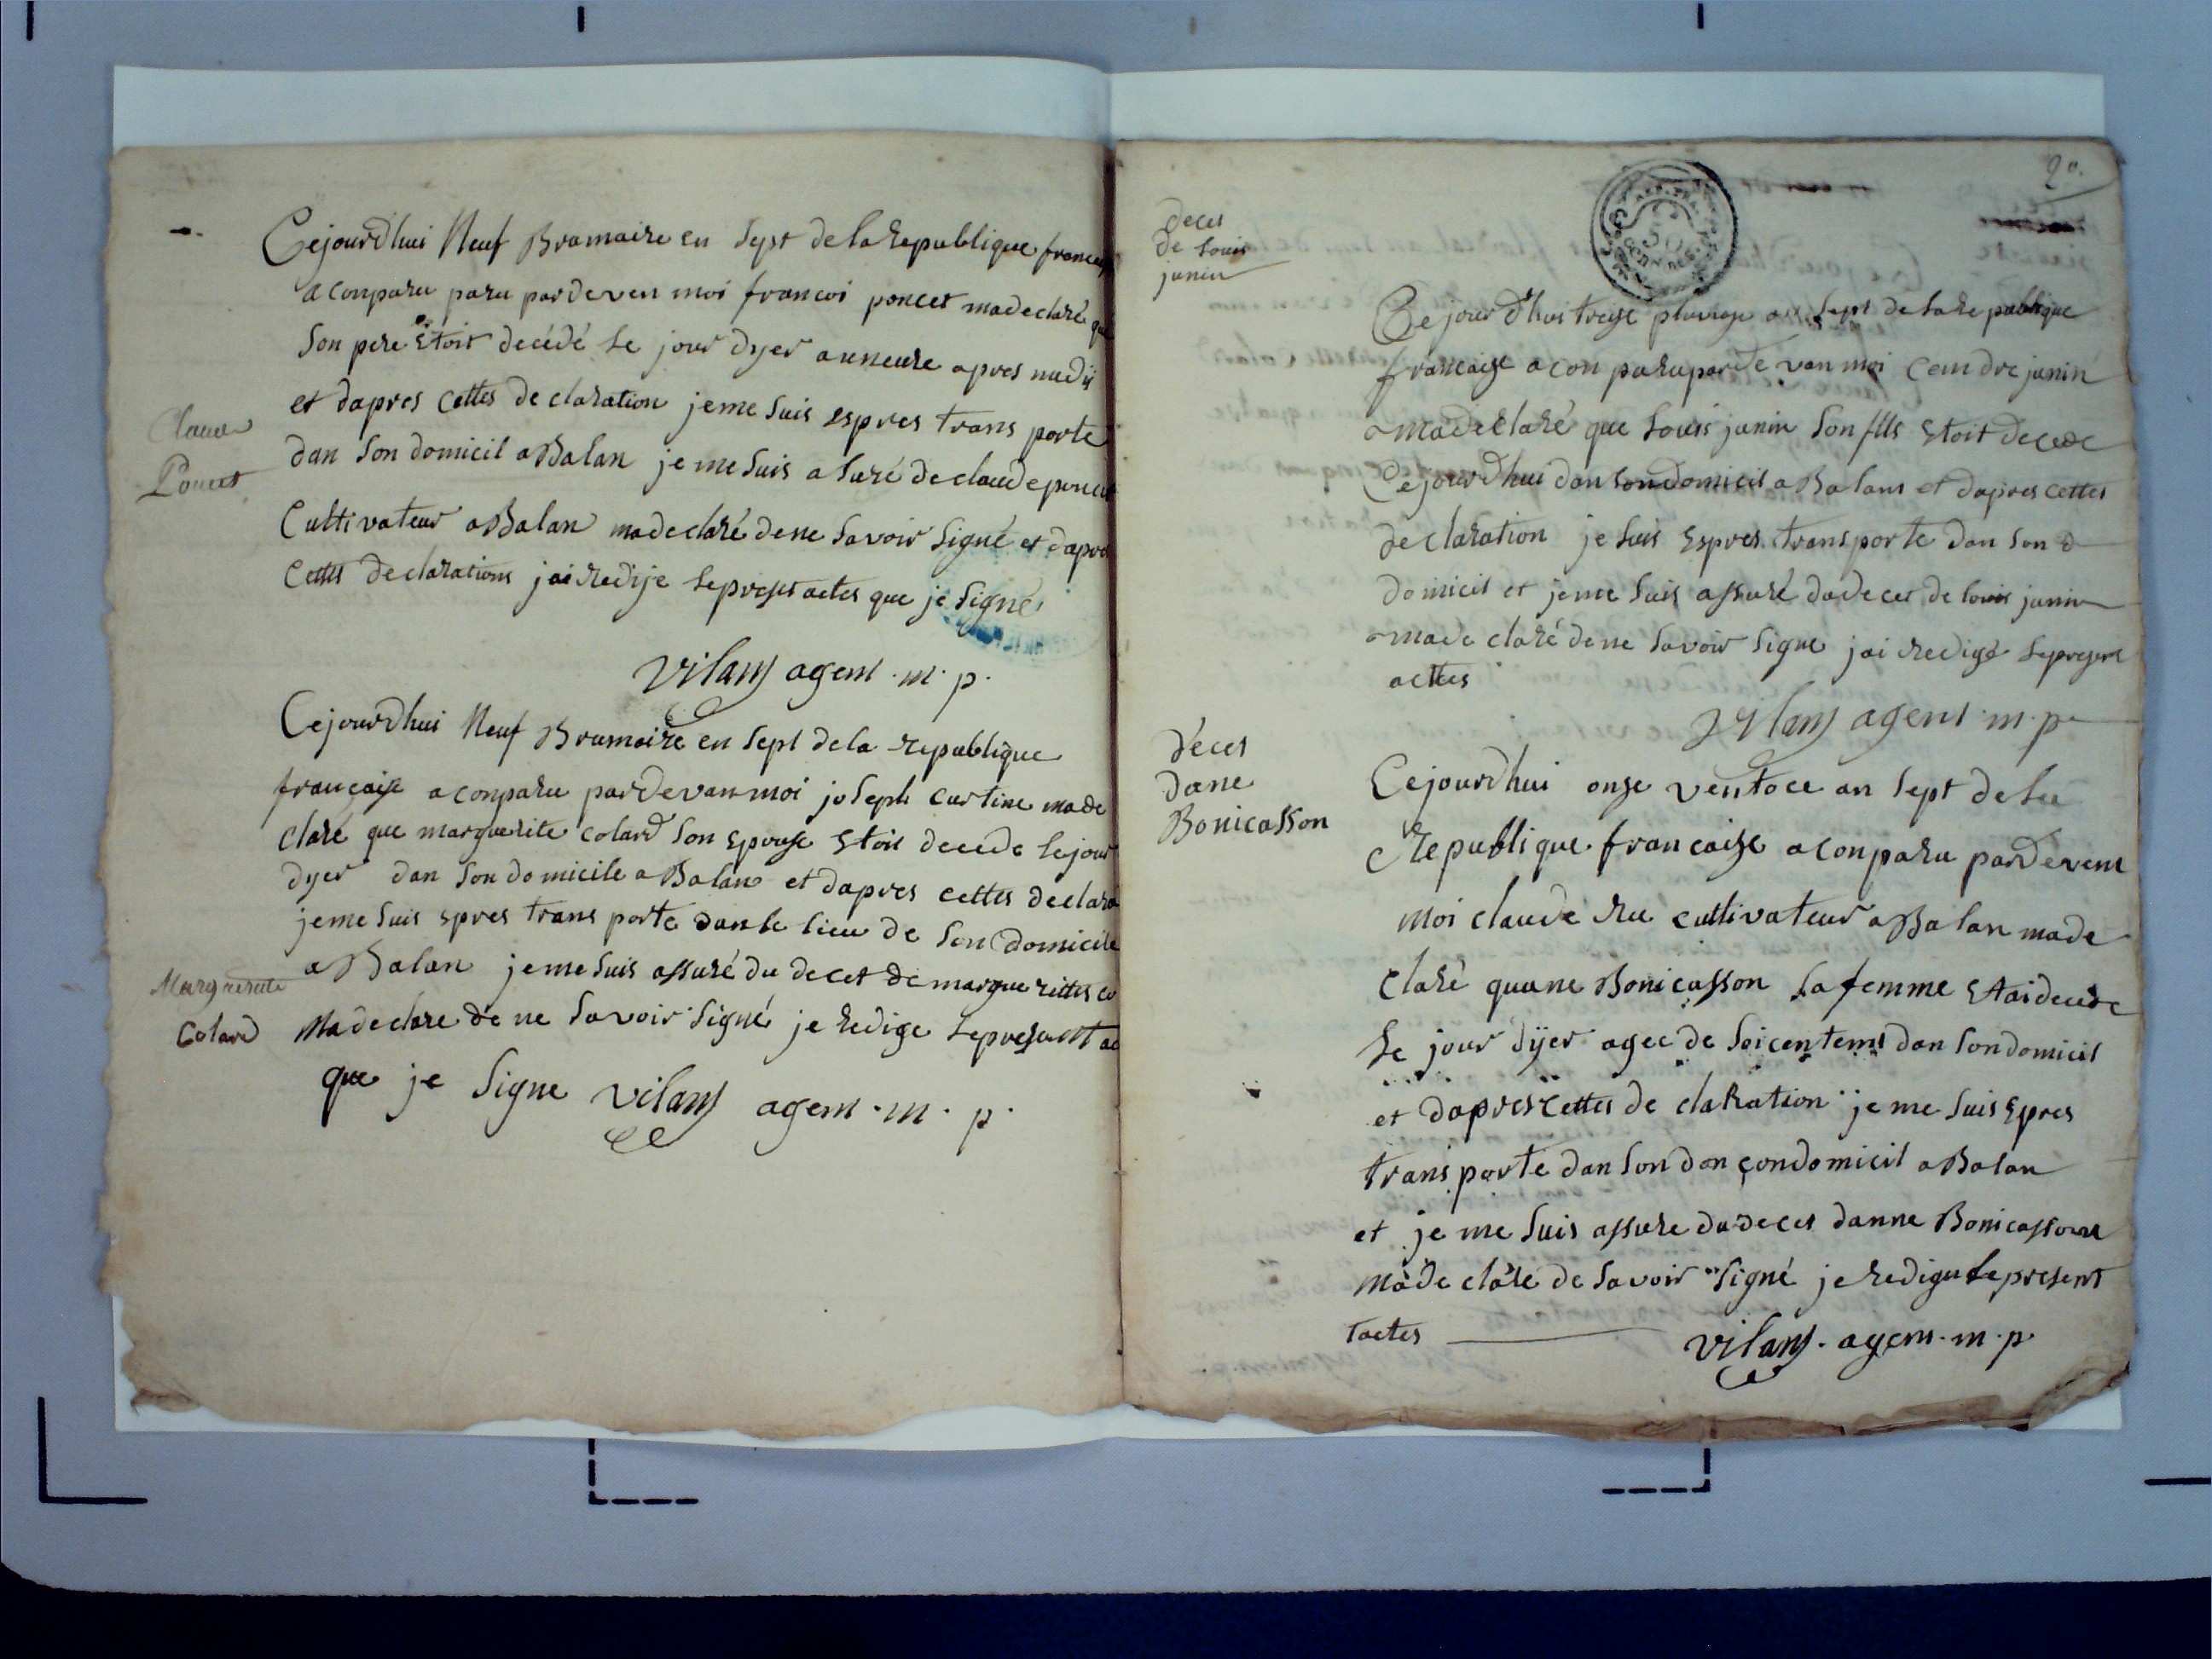 Cejourdhui Neuf Bramaire en Sept de la Republique francais
a conparu paru pardeven moi francoi poncet madeclaré que
Son pere Etoit decédé Le jour dyer a uneure apres midÿ
et dapres cettes declaration jeme Suis espres trans porte
Claude
Poncet
dan Son domicil a Balan je me Suis a Suré de claude poncet
Cultivateur a Balan madeclaré dene Savoir Signé et dapres
Cettes declarations jai Redije Le present actes que je Signé
Vilans agent . m . p .
Cejourdhui Neuf Brumaire en Sept dela republique
française a conparu pardevan moi joseph Curtine made
claré que marguerite colard Son Epouse Etoit decede Lejour
dyer dan Son domicile a Balan et dapres cettes declara
jeme Suis Epres trans porte dan le lieu de Son Domicile
a Balan jeme Suis assuré du decet de marguerittes co
Marguerite
Colard
Madeclare de ne Savoir Signé je redige Le presant ac
que je Signe Vilans agent . m . p .
20.
deces
de Louis
janin
Cejourdhui treise pluviose an Sept de La Republique
française a con paru parde van moi Cendre janin
madeclaré que Louis janin Son fils Etoit decede
Cejourdhui dan Son domicil a Balans et dapres cettes
declaration je Suis Espres transporte dan Son d
domicil et jeme Suis assuré dudeces de louis janin
made claré dene Savoir Signe jai Redigé Le present
acttes
Vilans agent . m . p
déces
dane
Bonicasson
Cejourdhui onse ventoce an Sept de La
Republique francaise a conparu pardevent
moi claude Ru cultivateur a Balan made
claré quane Bonicasson Sa femme Etaidecede
Le jour dÿer agee de Soicentems dan Sondomicil
et dapres cettes de claration je me Suis Epres
trans porte dan Son dan çondomicil a Balan
et je me Suis assure dudeces danne Bonicasson
made claré de Savoir Signé je redigu Le present
tactes Vilans . agent . m . p